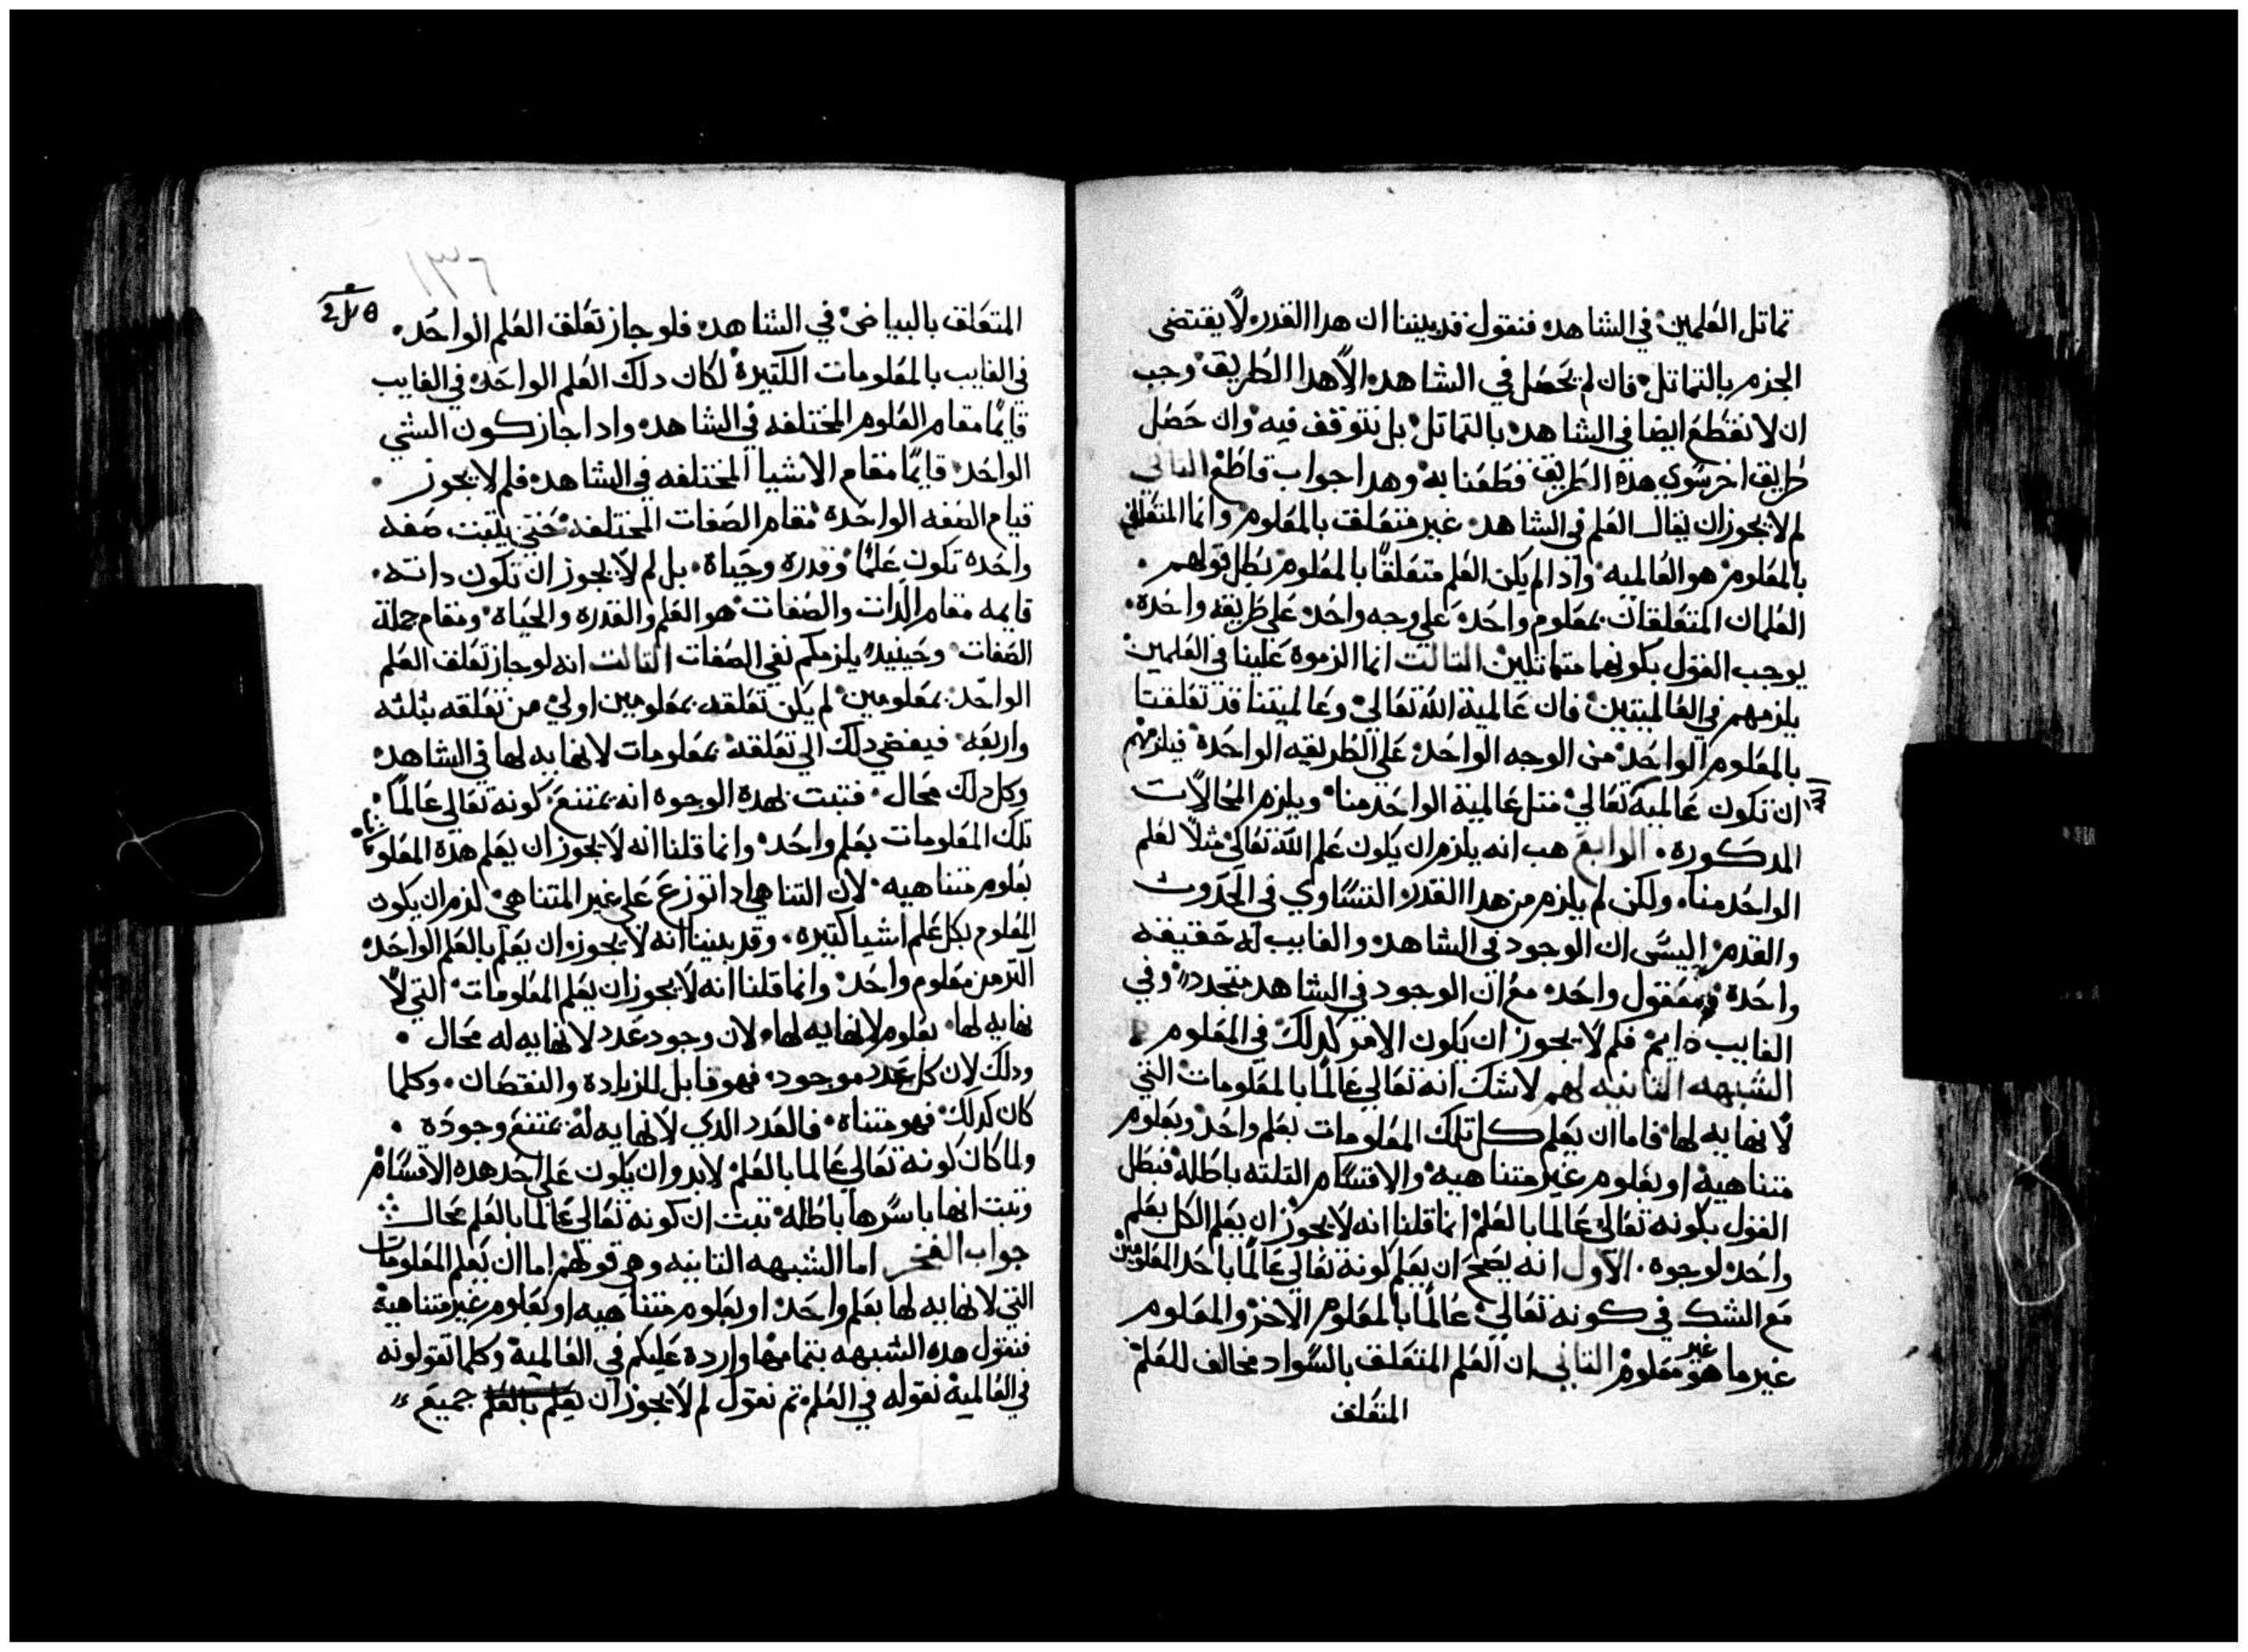 تماتل العلمين في الشاهد فنقول قد بيننا ان هدا القدر لا يقتضى
الجزم بالتماتل فان لم يحصل في الشاهد الا هدا الطريق وجب
ان لا نقطع ايضا في الشاهد بالتماتل بل نتوقف فيه وان حصل
طريق اخر سوي هذه الطريق قطعنا به وهدا جواب قاطع التاني
لم لا يجوز ان يقال العلم في الشاهد غير متعلق بالمعلوم وانما المتعلق
بالمعلوم هو العالميه واذا لم يكن العلم متعلقا بالمعلوم بطل قولهم
العلمان المتعلقان بمعلوم واحد علي وجه واحد علي طريقه واحده
يوجب القول بكونهما متماتلين التالت انما الزموه علينا في العلمين
يلزمهم في العالميتين فان عالمية الله تعالي وعالميتنا قد تعلقتا
بالمعلوم الواحد من الوجه الواحد علي الطريقه الواحدة فيلزمهم
ان تكون عالمية تعالي متل عالمية الواحد منا ويلزم المحالات
المدكورة الرابع هب انه يلزم ان يكون علم الله تعالي مثلا لعلم
الواحد منا ولكن لم يلزم من هدا القدر التساوي في الحدوت
والقدم اليس ان الوجود في الشاهد والغايب له حقيقه
واحدة ومعقول واحد مع ان الوجود في الشاهد متجدد وفي
الغايب دايم فلم لا يجوز ان يكون الامر كدلك في المعلوم
الشبهه التانيه لهم لا شك انه تعالي عالما بالمعلومات التي
لا نهايه لها فاما ان يعلم كل تلك المعلومات بعلم واحد وبعلوم
متناهية او بعلوم غير متناهيه والاقسام التلته باطله فبطل
القول بكونه تعالي عالما بالعلم انما قلنا انه لا يجوز ان يعلم الكل بعلم
واحد لوجوه الاول انه يصح ان يعلم كونه تعالي عالما باحد المعلومين
مع الشك في كونه تعالي عالما بالمعلوم الاخر والمعلوم
غير ما هو غير معلوم التاني ان العلم المتعلق بالسواد مخالف للعلم
المتعلق
١٣٦
المتعلق بالبياض في الشاهد فلو جاز تعلق العلم الواحد
في الغايب بالمعلومات الكتيرة لكان دلك العلم الواحد في الغايب
قايما مقام العلوم المختلفه في الشاهد وادا جاز كون الشي
الواحد قايما مقام الاشيا المختلفه في الشاهد فلم لا يجوز
قيام الصفه الواحدة مقام الصفات المختلفه حتي يتبت صفه
واحده تكون علما وقدره وحياة بل لم لا يجوز ان تكون داته
قايمه مقام الدات والصفات هو العلم والقدره والحياة ومقام جملة
الصفات وحينيد يلزمكم نفي الصفات التالت انه لو جاز تعلق العلم
الواحد بمعلومين لم يكن تعلقه بمعلومين اولي من تعلقه بثلته
واربعه فيفضي دلك الي تعلقه بمعلومات لا نهايه لها في الشاهد
وكل دلك محال فتبت بهدة الوجوه انه يمتنع كونه تعالي عالما
تلك المعلومات بعلم واحد وانما قلنا انه لا يجوز ان يعلم هدة المعلومات
بعلوم متناهيه لان التناهي ادا توزع علي غير المتناهي لزم ان يكون
المعلوم بكل علم اشيا كتيره وقد بيننا انه لا يجوز ان يعلم بالعلم الواحد
اكتر من معلوم واحد وانما قلنا انه لا يجوز ان يعلم المعلومات التي لا
نهايه لها بعلوم لا نهايه لها لان وجود عدد لا نهايه له محال
ودلك لان كل عدد موجود فهو قابل للزيادة والنقصان وكلما
كان كدلك فهو متناه فالعدد الدي لا نهايه له يمتنع وجوده
ولما كان كونه تعالي عالما بالعلم لابد وان يكون علي احد هده الاقسام
وتبت انها باسرها باطله تبت ان كونه تعالي عالما بالعلم محال
جواب الفخر اما الشبهه التانيه وهي قولهم اما ان يعلم المعلومات
التي لا نهايه لها بعلم واحد او بعلوم متناهيه او بعلوم غير متناهية
فنقول هده الشبهه بتمامها واردة عليكم في العالمية وكلما تقولونه
في العالمية نقوله في العلم تم نقول لم لا يجوز ان يعلم بالعلم جميع